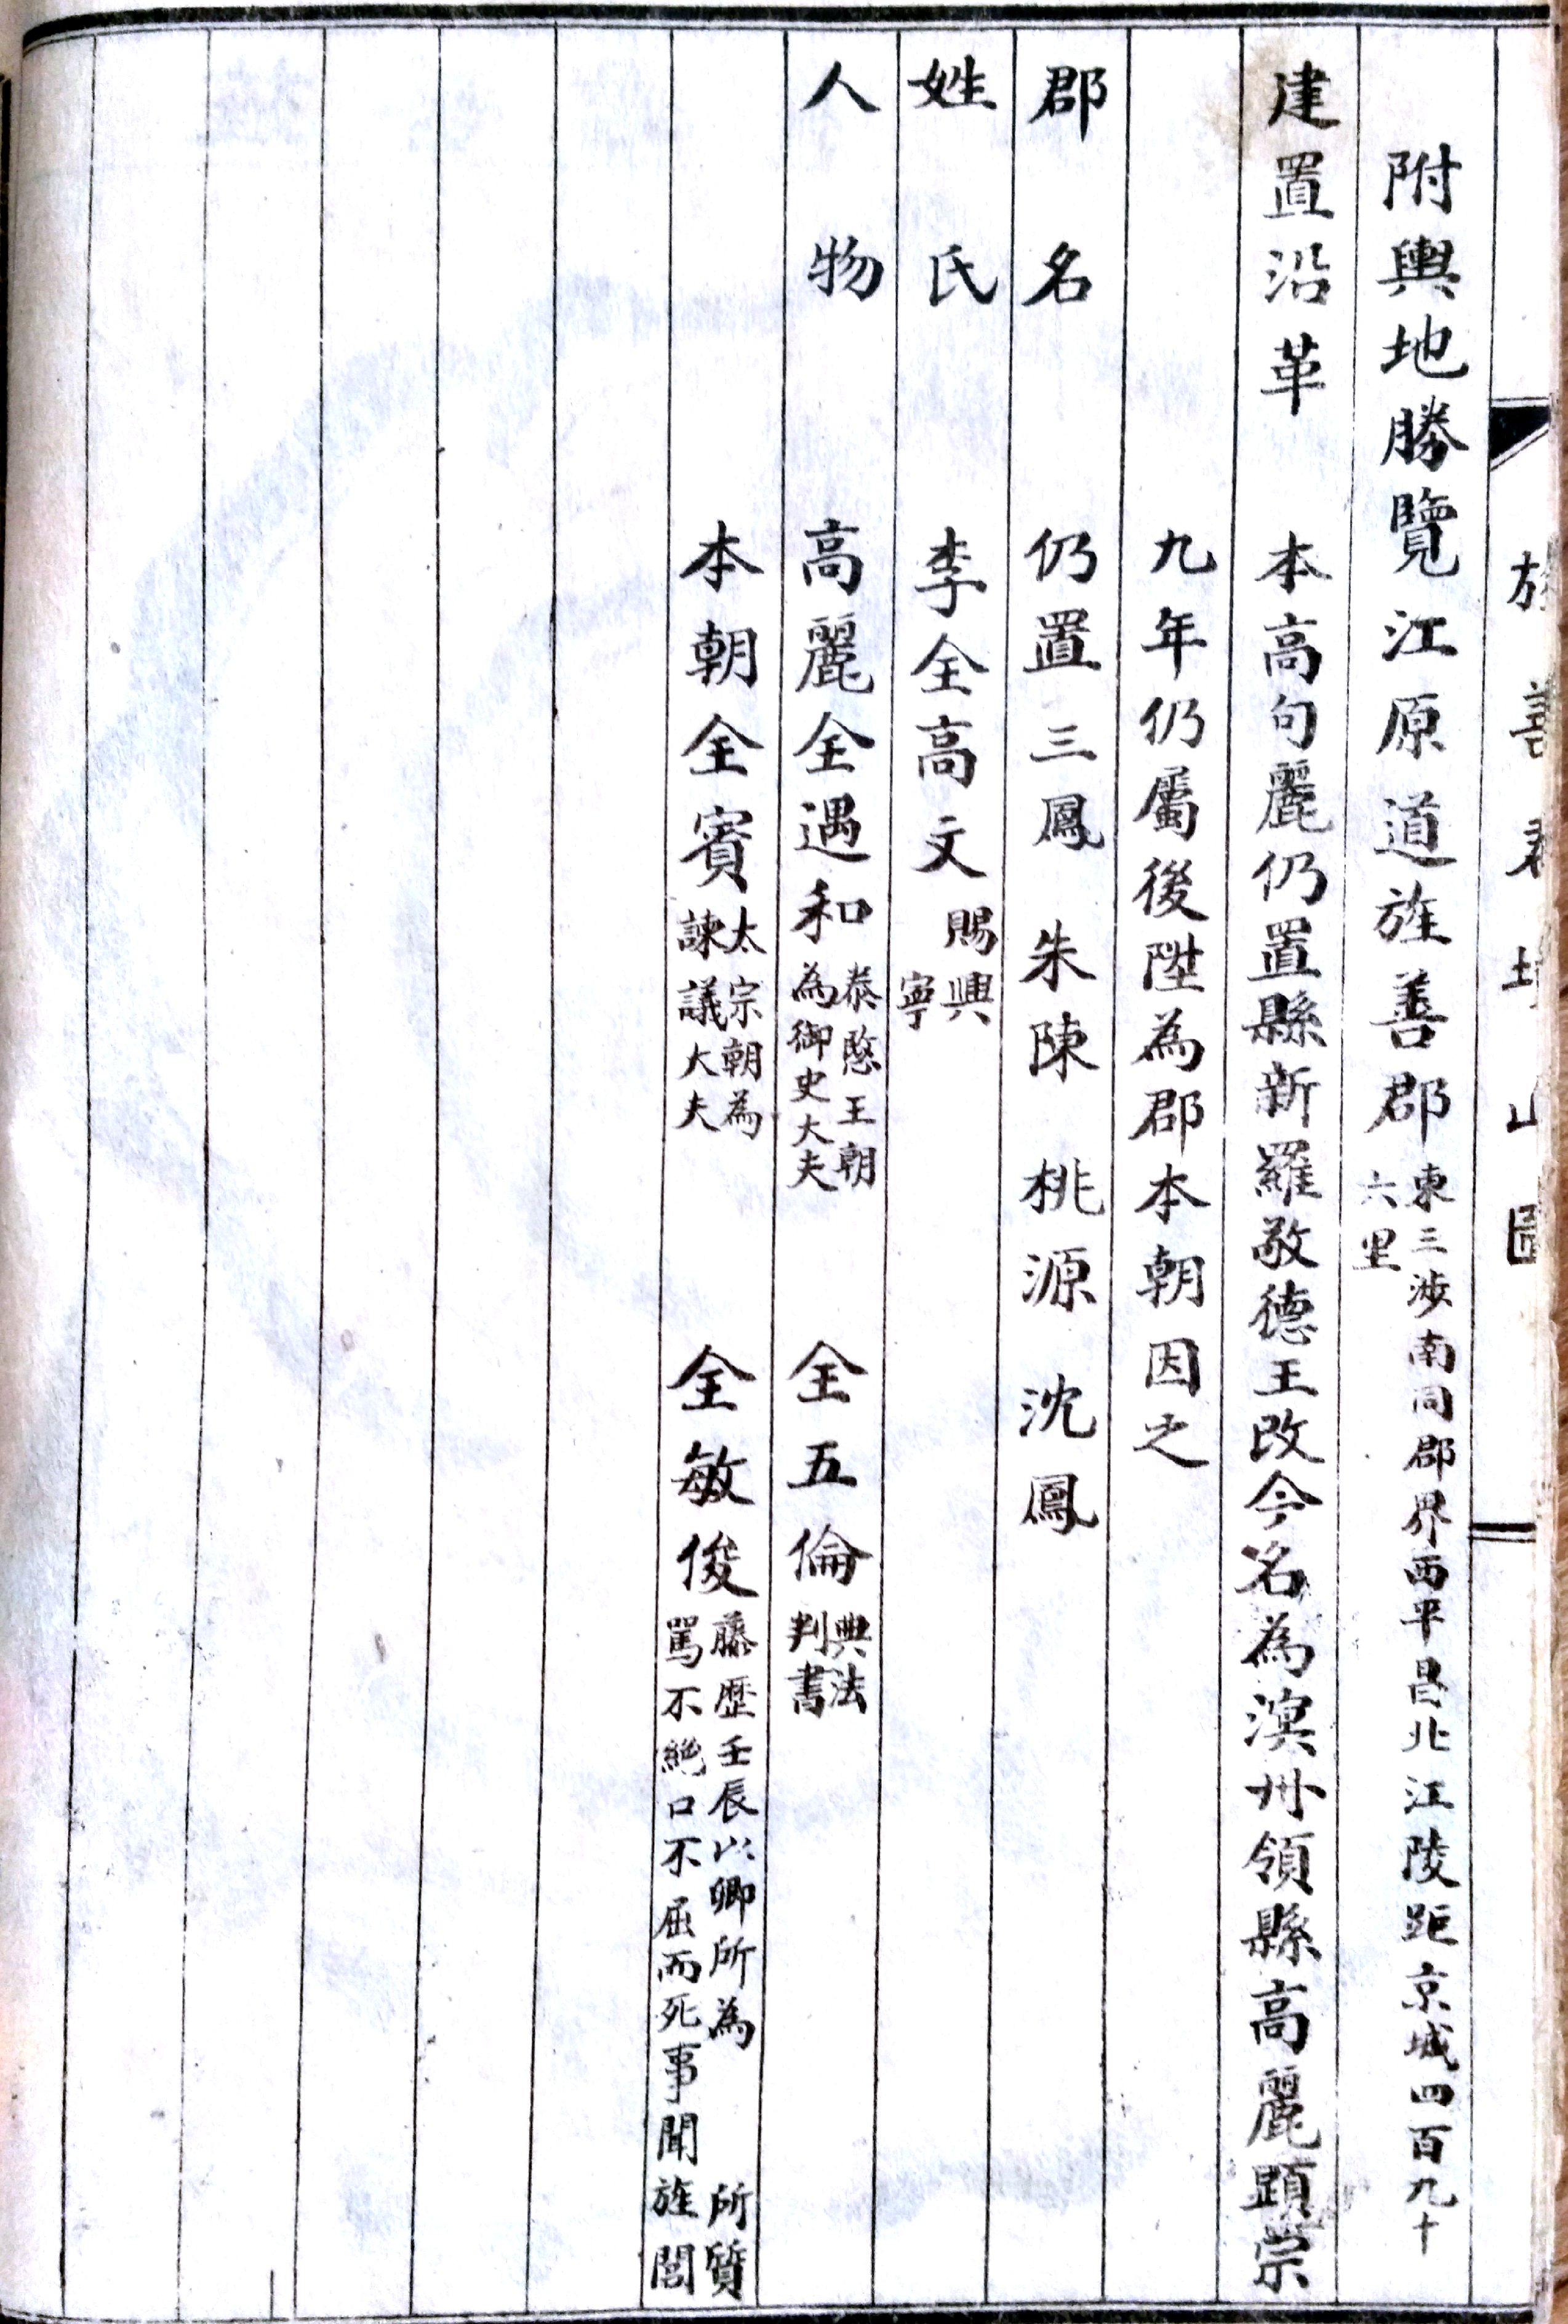 旌善郡墳山圖
附輿地勝覽江原道旌善郡 東三涉南同郡界西平昌北江陵距京城四百九十
六里
建置沿革 本高句麗仍置縣新羅敬德王改今名為溟州領縣高麗顕宗
九年仍屬後陞為郡本朝因之
郡名 仍置 三鳳 朱陳 桃源 沈鳳
姓氏 李全高文 賜興
寧
人物 高麗全遇和 恭愍王朝
為御史大夫
全五倫 典法
判書
本朝全賓 太宗朝為
諫議大夫
全敏俊 藤歷壬辰以鄉所為 所質
罵不絕口不屈而死事聞旌閭